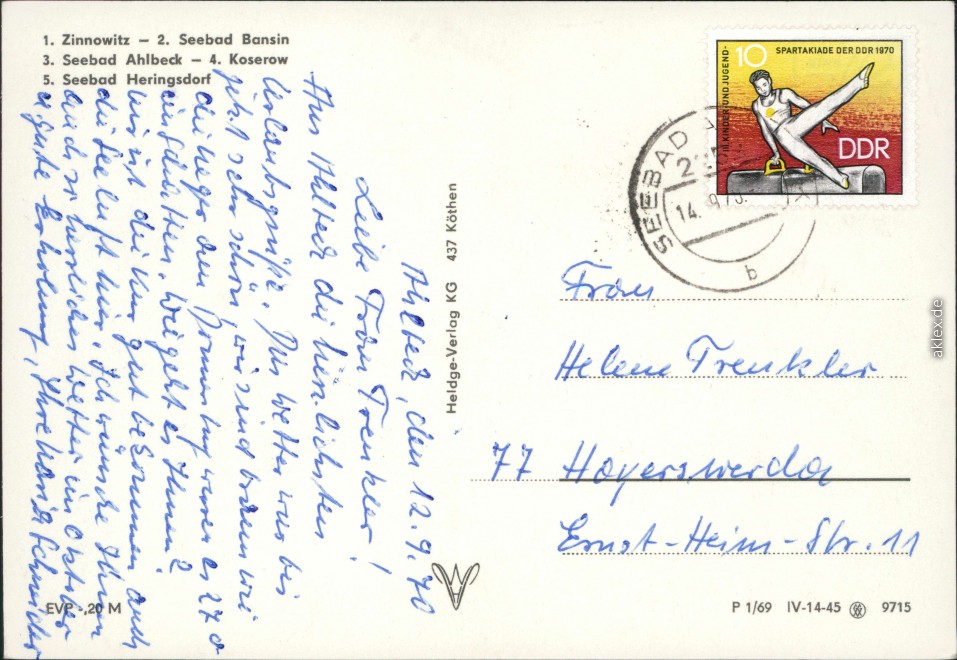 1. Zinnowitz – 2. Seebad Bansin
3. Seebad Ahlbeck – 4. Koserow
5. Seebad Heringsdorf
Ahlbeck, den 12.9.70
Liebe Frau Trenkler!
Aus Ahlbeck die herzlichsten
Urlaubsgrüße. Das Wetter war bis
jetzt sehr schön, wir sind braun wie
die Neger den Donnerstag waren es 27°
im Schatten. Wie geht es Ihnen?
mir ist die Kur gut bekommen auch
die Seeluft hier. Ich wünsche Ihnen
auch so herrliches Wetter im Oktober
u gute Erholung, Ihre Schneider
Heldge-Verlag KG 437 Köthen
EVP -,20 M
10 SPARTAKIADE DER DDR 1970
III. KINDER- UND JUGEND-
DDR
SEEBAD
14. 9. 70
b
Frau
Helene Trenkler
77 Hoyerswerda
Ernst-Heim-Str. 11
P 1/69 IV-14-45 9715
aklex.de